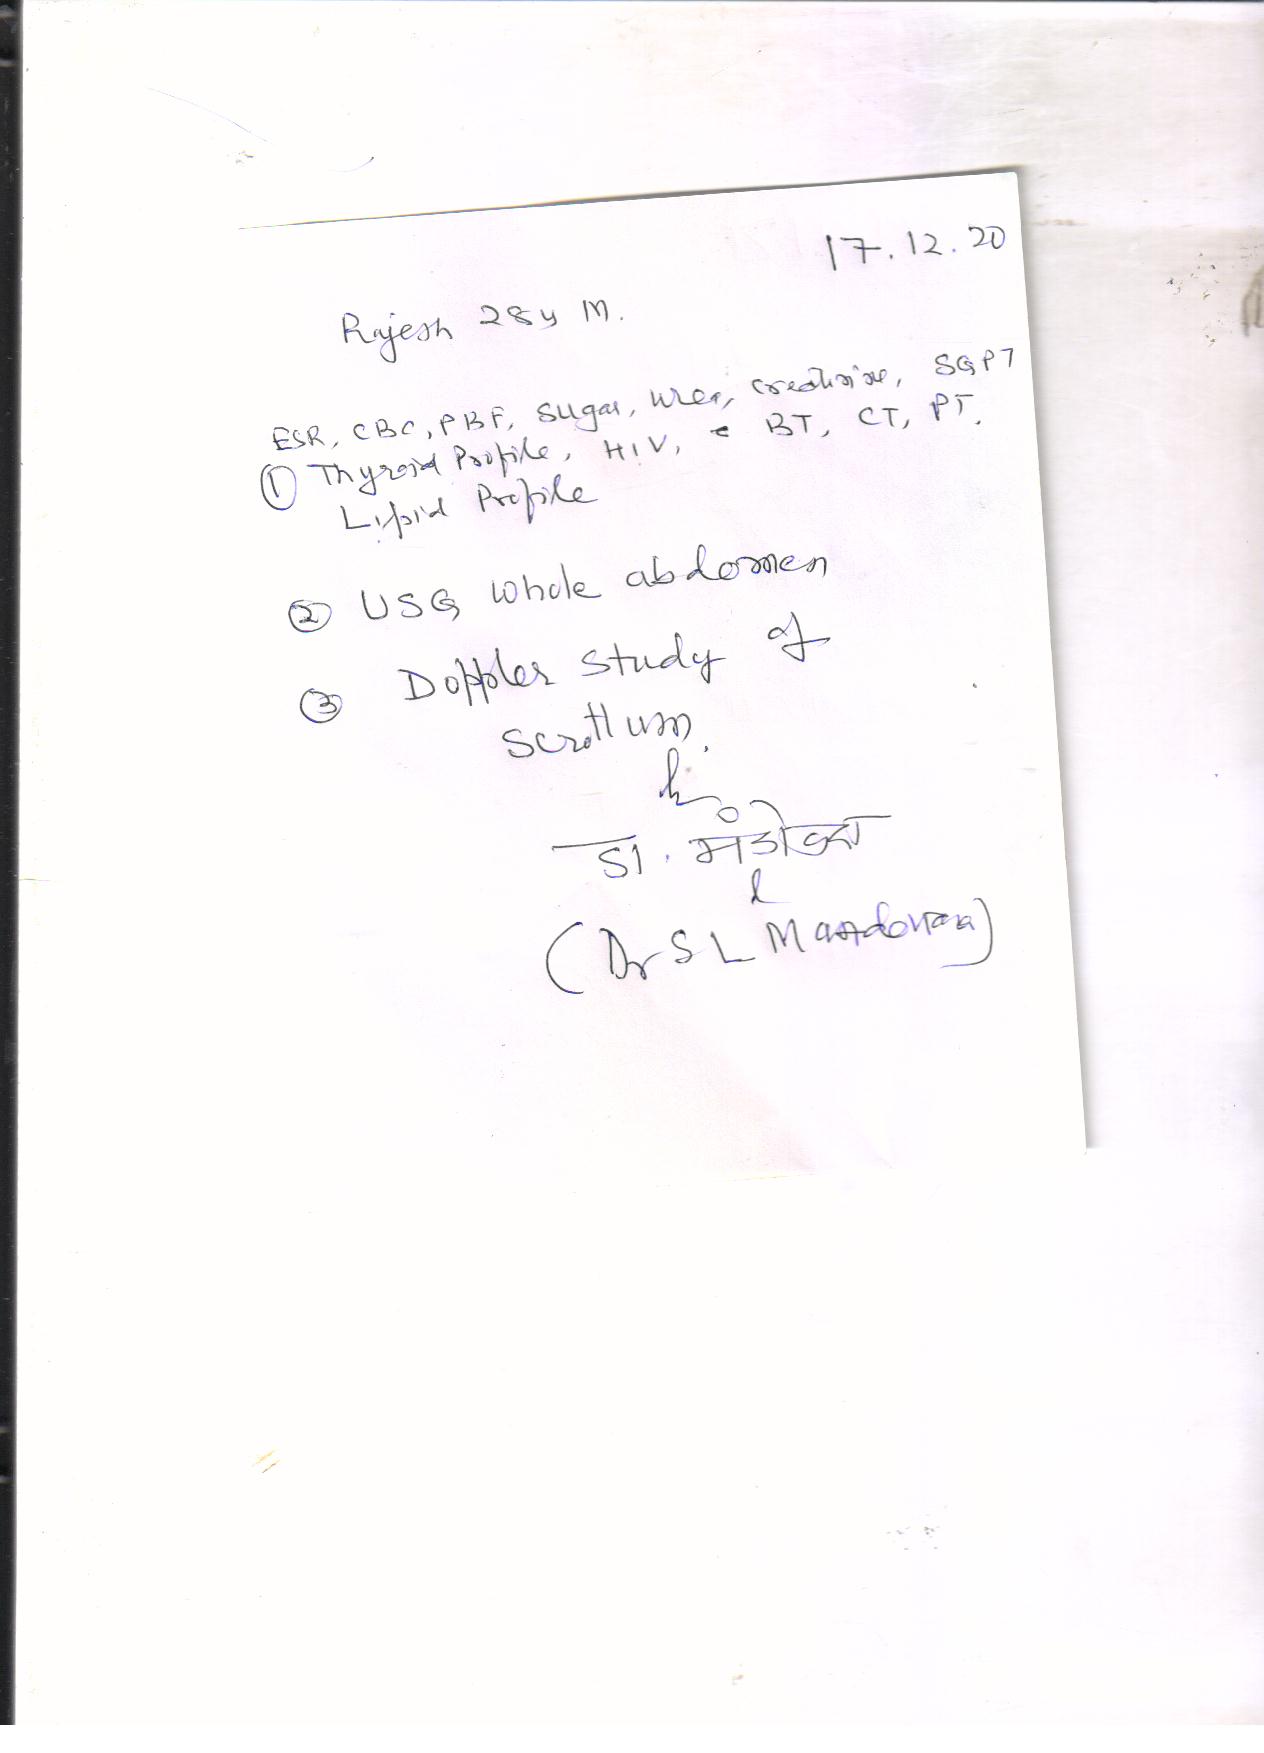 17.12.20
Rajesh 28y M.
ESR, CBC, PBF, Sugar, Urea, Creatinine, SGPT
① Thyroid Profile, HIV, BT, CT, PT.
Lipid Profile
② USG whole abdomen
③ Doppler study of
scrottum.
डा. मंडोवरा
(Dr S L Mandovara)